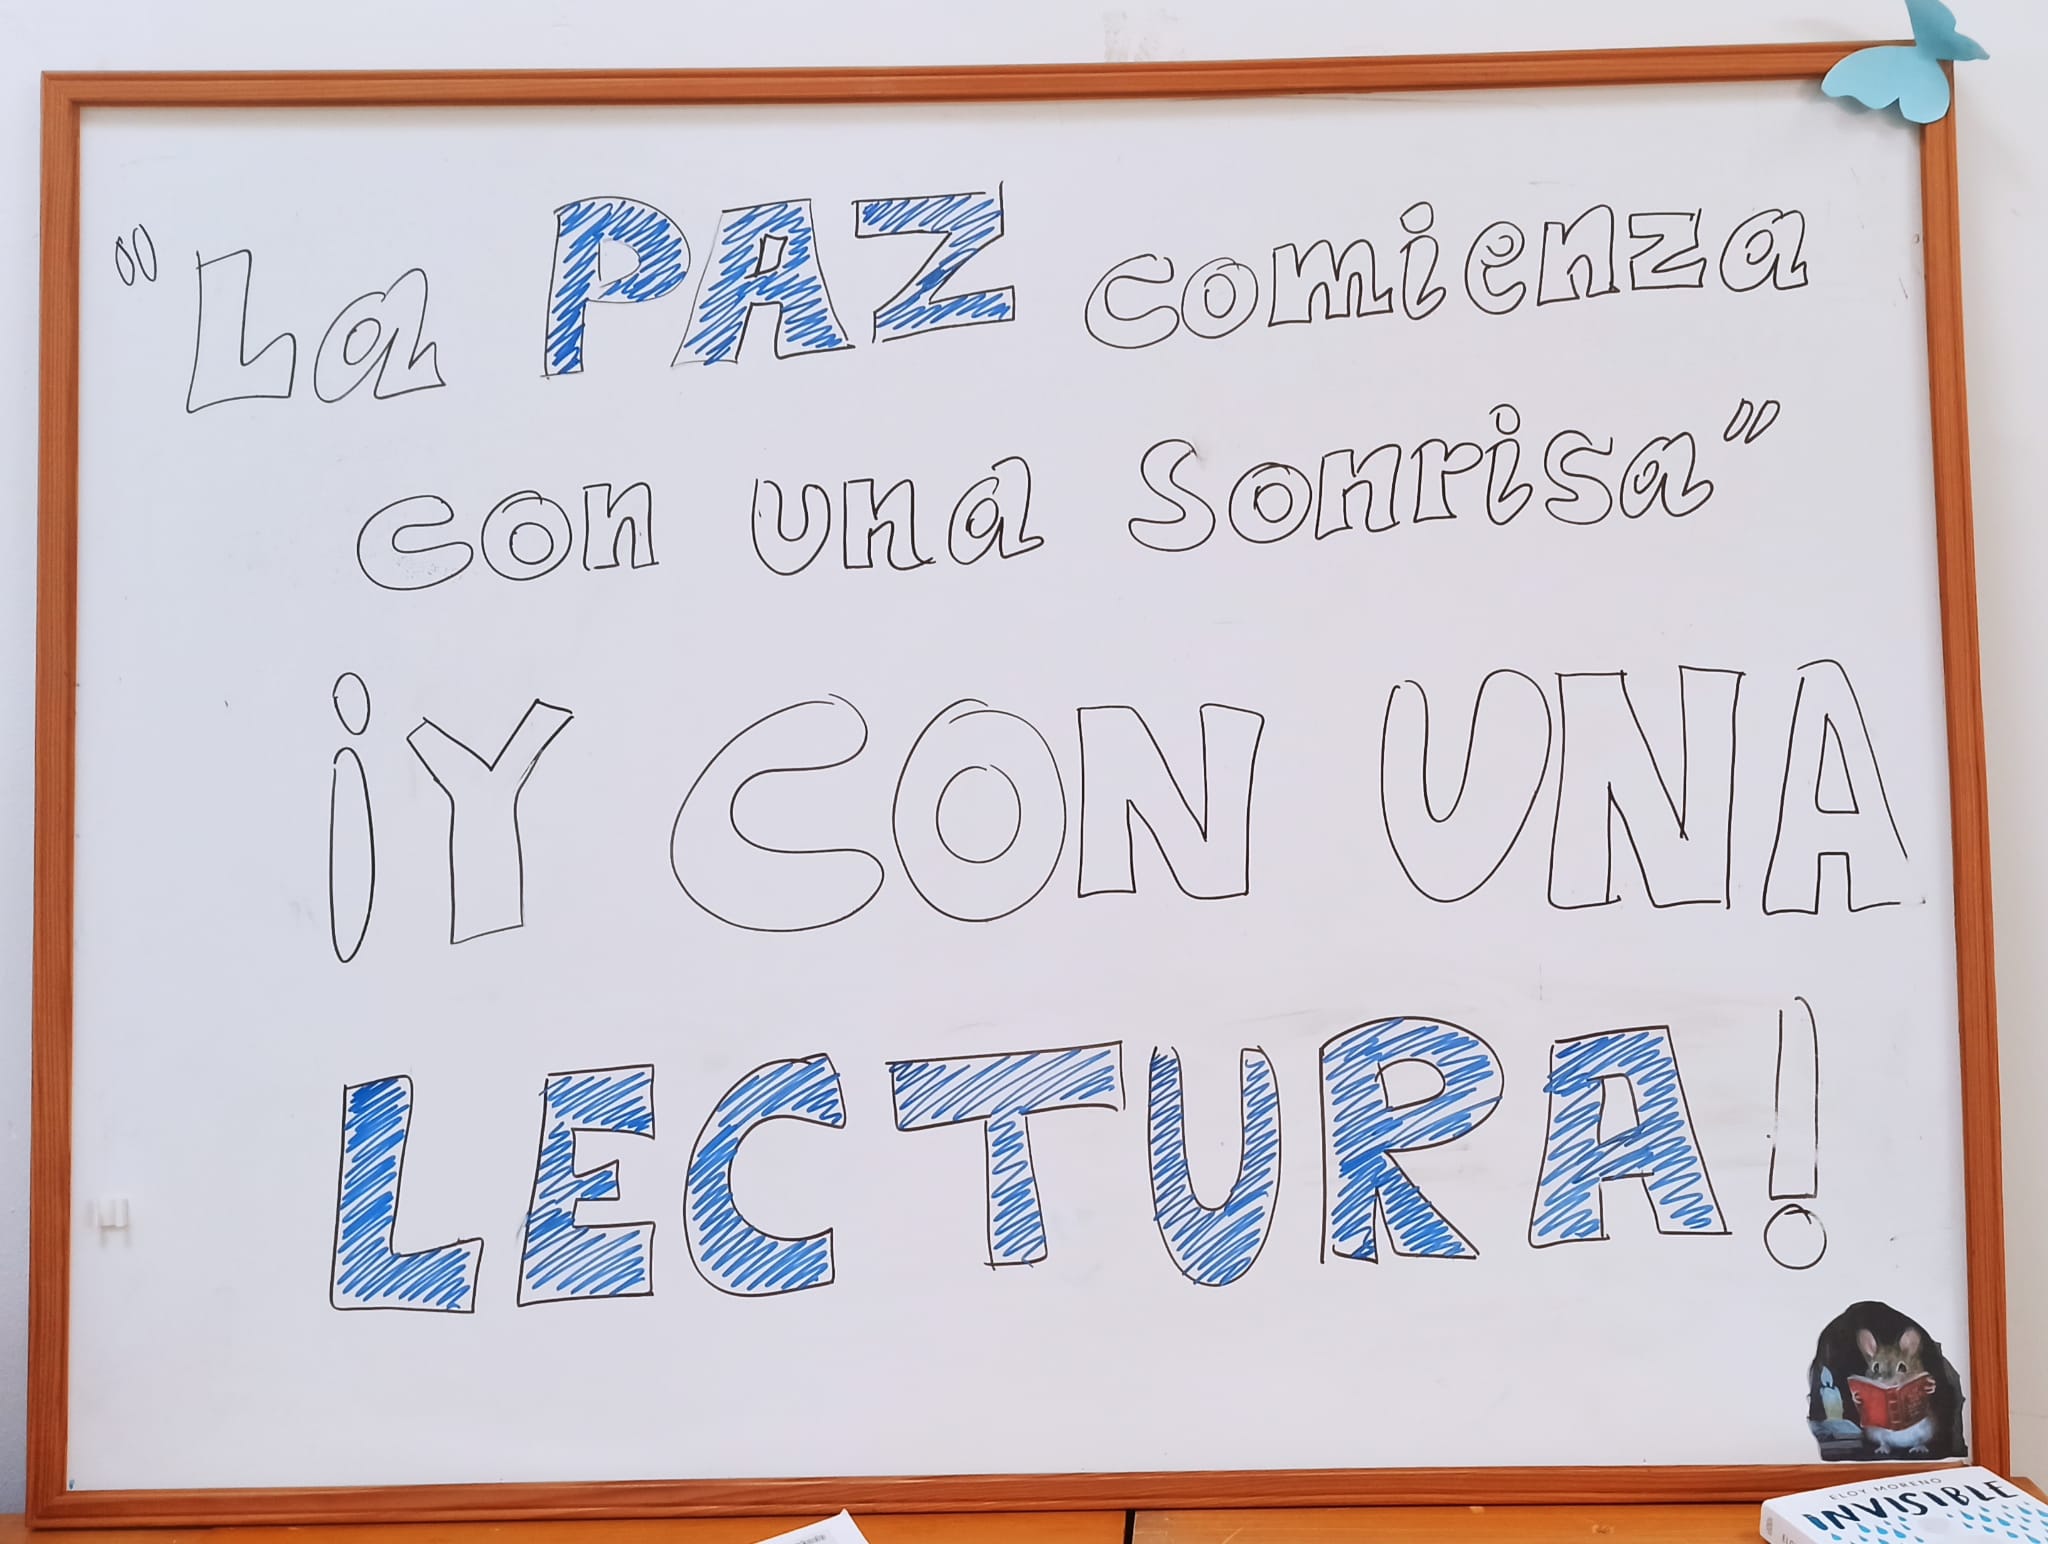 "La PAZ comienza
con una sonrisa"
¡Y CON UNA
LECTURA!
ELOY MORENO
INVISIBLE